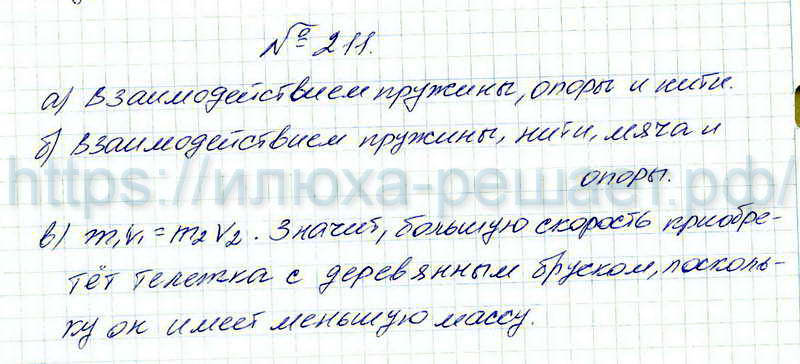 № 211.
а) Взаимодействием пружины, опоры и нити.
б) Взаимодействием пружины, нити, мяча и
опоры.
https://илюха-решает.рф/
в) m₁v₁ = m₂v₂. Значит, большую скорость приобре-
тёт тележка с деревянным бруском, посколь-
ку он имеет меньшую массу.